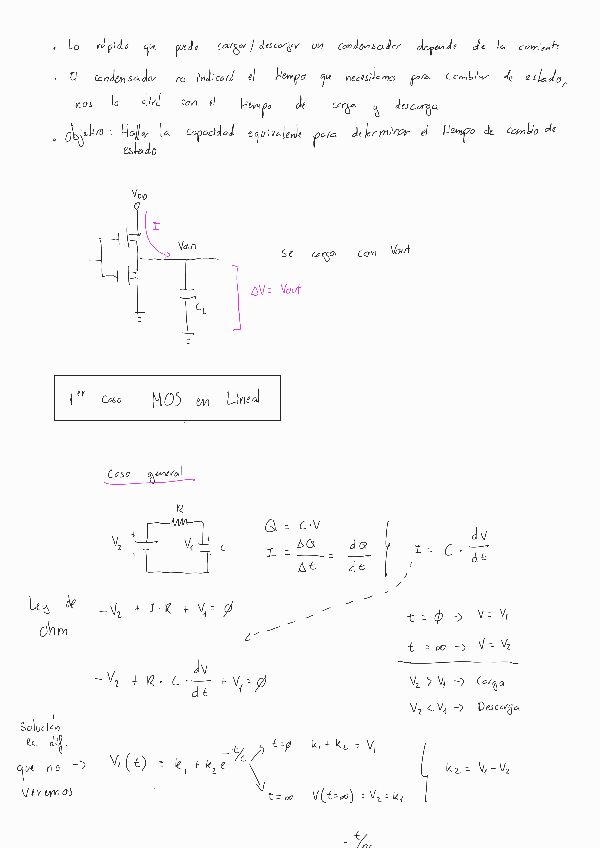 · Lo rápido que puede cargar/descargar un condensador depende de la corriente
· El condensador no indicará el tiempo que necesitamos para cambiar de estado,
nos lo dirá con el tiempo de carga y descarga
· Objetivo: Hallar la capacidad equivalente para determinar el tiempo de cambio de
estado
VDD
I
Vout
Se carga con Vout
ΔV = Vout
CL
1er Caso MOS en Lineal
Caso general
R
V2 + V1 C
Q = C·V
I = ΔQ/Δt = dQ/dt
I = C · dV/dt
Ley de
Ohm
-V2 + I·R + V1 = ∅
t = ∅ -> V = V1
t = ∞ -> V = V2
-V2 + R · C · dV/dt + V1 = ∅
V2 > V1 -> Carga
V2 < V1 -> Descarga
Solución
ec dif.
que no ->
veremos
V1(t) = k1 + k2 e^-t/τ
t=∅ k1 + k2 = V1
t=∞ V(t=∞) = V2 = k1
k2 = V1 - V2